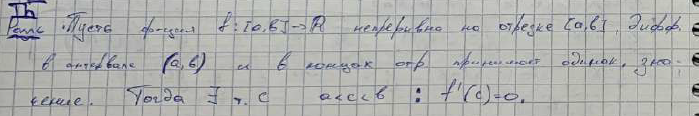 Th
Ролль. Пусть функция f: [a,b]→R непрерывна на отрезке [a,b], дифф.
в интервале (a,b) и в концах отр. принимает одинак. зна-
чение. Тогда ∃ т. c a<c<b : f'(c)=0.